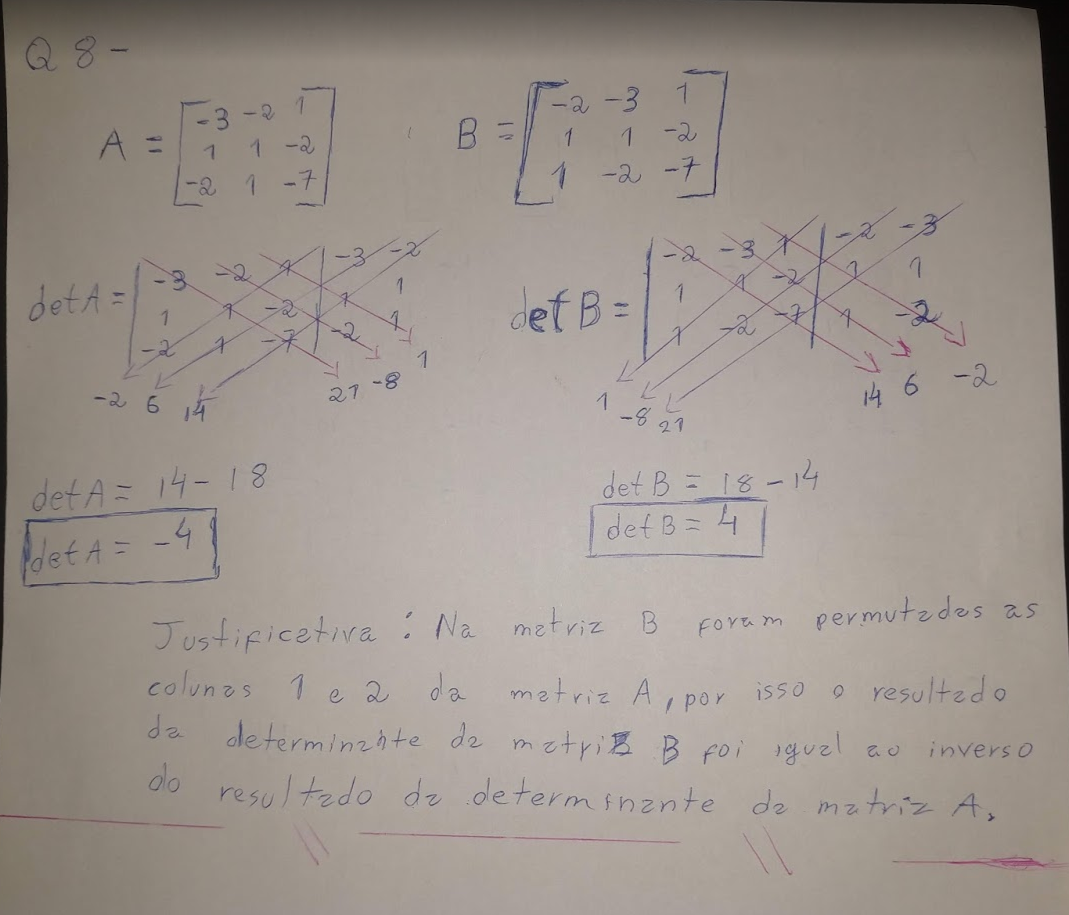 Q 8 -
A = [ -3 -2 1 B = [ -2 -3 1
1 1 -2 1 1 -2
-2 1 -7 ] 1 -2 -7 ]
det A = | -3 -2 1 | -3 -2 det B = | -2 -3 1 | -2 -3
1 1 -2 1 1 1 1 -2 1 1
-2 1 -7 -2 1 1 -2 -7 1 -2
-2 6 14 21 -8 1 1 -8 21 14 6 -2
det A = 14 - 18 det B = 18 - 14
det A = -4 det B = 4
Justificativa : Na matriz B foram permutadas as
colunas 1 e 2 da matriz A, por isso o resultado
da determinante da matriz B foi igual ao inverso
do resultado da determinante da matriz A.